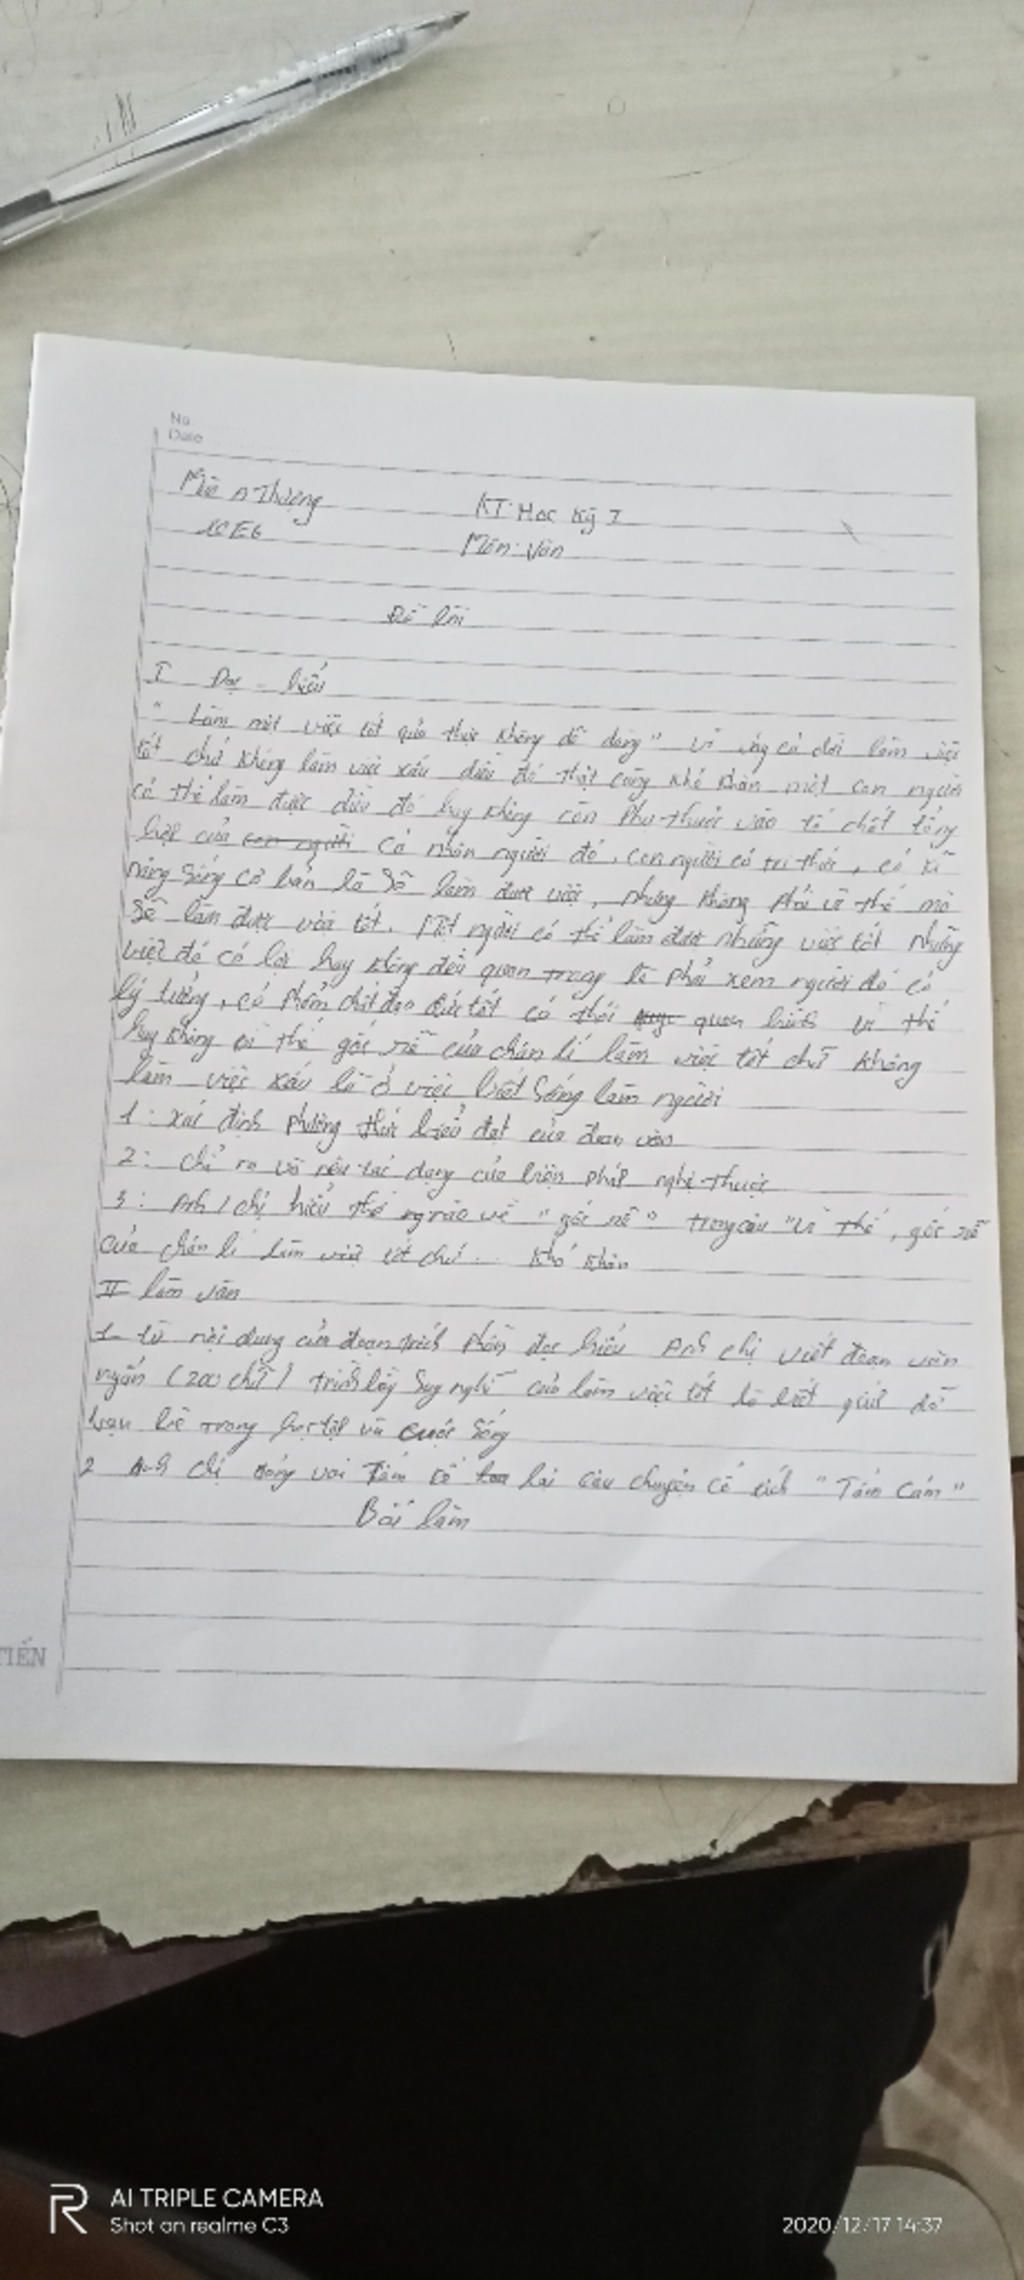 No
Date
KT: Học Kỳ I
10E6
Môn: Văn
Đề bài
I Đọc - hiểu
"Làm một việc tốt quả thực không dễ dàng" vì cả đời làm việc
tốt chứ không làm việc xấu điều đó thật cũng khó khăn một con người
có thể làm được điều đó hay không còn phụ thuộc vào tố chất tổng
hợp của con người cá nhân người đó, con người có tri thức, có kĩ
năng sống cơ bản là sẽ làm được việc, nhưng không phải vì thế mà
sẽ làm được việc tốt. Một người có thể làm được những việc tốt những
việc đó có lợi hay không đều quan trọng là phải xem người đó có
lý tưởng, có phẩm chất đạo đức tốt có thói quen hành vi thế
hay không vì thế gốc rễ của chân lí làm việc tốt chứ không
làm việc xấu là ở việc biết sống làm người
1: xác định phương thức biểu đạt của đoạn văn
2: chỉ ra và nêu tác dụng của biện pháp nghệ thuật
3: Anh/chị hiểu thế nào về "gốc rễ" trong câu "Vì thế, gốc rễ
của chân lí làm việc tốt chứ... khó khăn
II làm văn
1- từ nội dung của đoạn trích phần đọc hiểu Anh chị viết đoạn văn
ngắn (200 chữ) trình bày suy nghĩ của làm việc tốt là biết giúp đỡ
bạn bè trong học tập và cuộc sống
2 Anh chị đóng vai Tấm kể lại câu chuyện cổ tích "Tấm Cám"
Bài làm
TIẾN
AI TRIPLE CAMERA
Shot on realme C3
2020/12/17 14:37